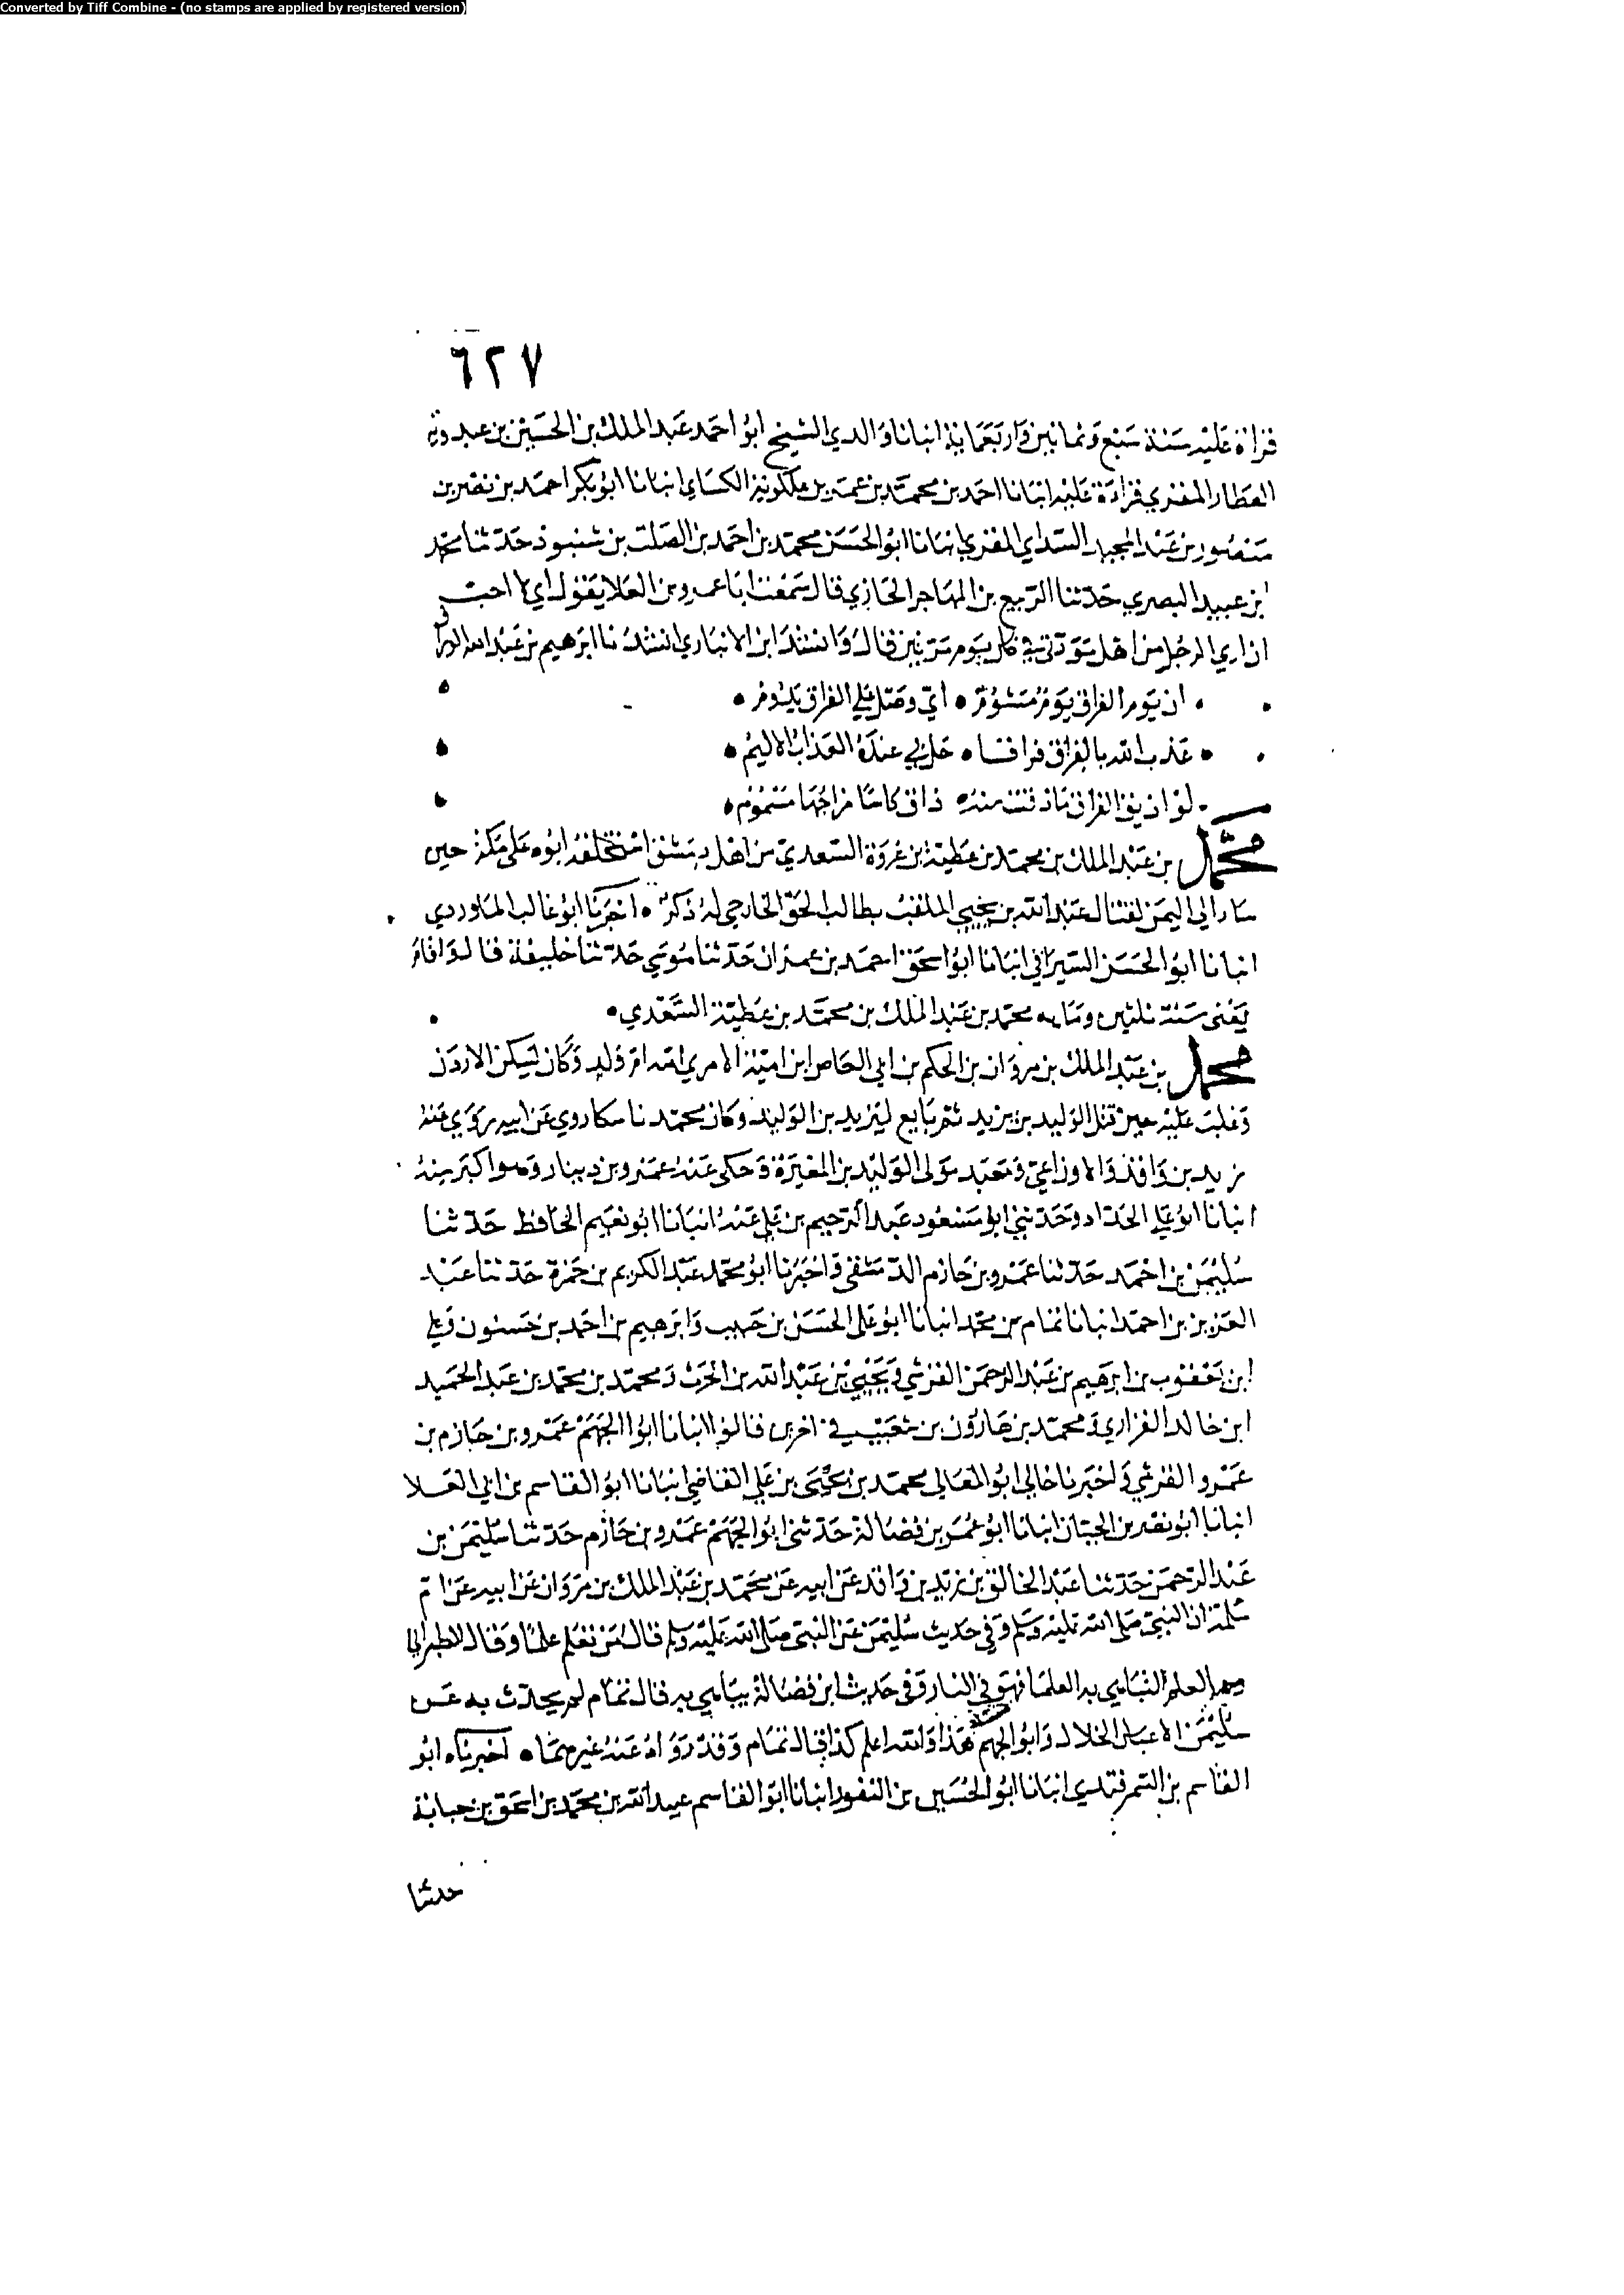 Converted by Tiff Combine - (no stamps are applied by registered version)
٦٢٧
قراة عليه سنة سبع وثمانين واربعماية انبانا والدي الشيخ ابو احمد عبد الملك بن الحسين بن عبدويه
العطار المقري قراءة عليه انبانا احمد بن محمد بن عمر بن ملكويه الكساي انبانا ابو بكر احمد بن نصر بن
منصور بن عبد المجيد السداي المقري انبانا ابو الحسن محمد بن احمد بن الصلت بن شنبوذ حدثنا محمد
ابن عبيد البصري حدثنا الربيع بن المهاجر الحازي قال سمعت ابا عمرو بن العلا يقول اي لا احب
ان اري الرجل من اهل مودتي في كل يوم مرتين قال وانشد ابن الانباري انشدنا ابرهيم بن عبد الله الوراق
ان يوم الفراق يوم مشوم • اي وصل علي الفراق يدوم •
• عذب الله بالفراق فراقا • حل بي عنده العذاب الاليم •
لو اذيق الفراق ماذقت منه ذاق كاسا مزاجها مسموم •
محمد بن عبد الملك بن محمد بن عطية بن عروة السعدي من اهل دمشق استخلفه ابوه على مكة حين
سار الى اليمن لقتال عبد الله بن يحيي الملقب بطالب الحق الخارجي له ذكر • اخبرنا ابو غالب الماوردي
انبانا ابو الحسن السيرافي انبانا ابو اسحق احمد بن عمران حدثنا موسي حدثنا خليفة قال واقام
يعنى سنة ثلثين ومايه محمد بن عبد الملك بن محمد بن عطية السعدي •
محمد بن عبد الملك بن مروان بن الحكم بن ابي العاص ابن امية الاموي امه ام ولد وكان يسكن الاردن
وغلب عليه حين قتل الوليد بن يزيد ثم بايع ليزيد بن الوليد وكان محمد ناسكا روي عن ابيه روي عنه
زيد بن واقد والاوزاعي ومعبد مولى الوليد بن المغيرة وحكى عنه عمرو بن دينار وهو اكبر منه
انبانا ابو علي الحداد وحدثني ابو مسعود عبد الرحيم بن علي عنه انبانا ابو نعيم الحافظ حدثنا
سليمن بن احمد حدثنا عمرو بن حازم الدمشقى واخبرنا ابو محمد عبد الكريم بن حمزة حدثنا عبد
العزيز بن احمد انبانا تمام بن محمد انبانا ابو على الحسن بن حبيب وابرهيم بن احمد بن حسنون وعلي
ابن يعقوب بن ابرهيم بن عبد الرحمن القرشي ويحيى بن عبد الله بن الحرث ومحمد بن محمد بن عبد الحميد
ابن خالد الفزاري ومحمد بن هارون بن شعيب في اخرين قالوا انبانا ابو الجهم عمرو بن حازم بن
عمرو القرشي واخبرنا خالي ابو المعالي محمد بن يحيى بن علي القاضي انبانا ابو القاسم بن ابي العلا
انبانا ابو نصر بن الجبان انبانا ابو عمر بن فضالة حدثنى ابو الجهم عمرو بن حازم حدثنا سليمن بن
عبد الرحمن حدثنا عبد الخالق بن زيد بن واقد عن ابيه عن محمد بن عبد الملك بن مروان عن ابيه عن ام
سلمة ان النبي صلى الله عليه وسلم وفي حديث سليمن عن النبي صلى الله عليه وسلم قال من تعلم علما وقال الطبراني
العلم ليباهي به العلما فهو في النار وفى حديث ابن فضالة يباهي به قال تمام لم يحدث به عن
سليمن الا عباس الخلال وابو الجهم هذا والله اعلم كذا قال تمام وقد رواه عنه غيرهما • اخبرناه ابو
القاسم بن السمرقندي انبانا ابو الحسين بن النقور انبانا ابو القاسم عبيد الله بن محمد بن اسحق بن حبابة
حدثنا